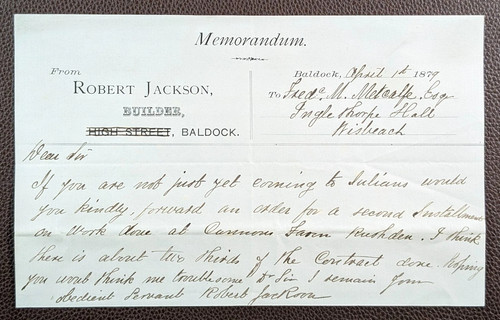 Memorandum.
From
ROBERT JACKSON,
BUILDER,
HIGH STREET, BALDOCK.
Baldock, April 1st 1879
To Fredc. M. Metcalfe, Esq
Inglethorpe Hall
Wisbeach
Dear Sir
If you are not just yet coming to Julians would
you kindly forward an order for a second Instalment
on Work done at Cannons Farm Rushden. I think
there is about two thirds of the Contract done. Hoping
you wont think me troublesome Dr Sir I remain Your
Obedient Servant Robert Jackson